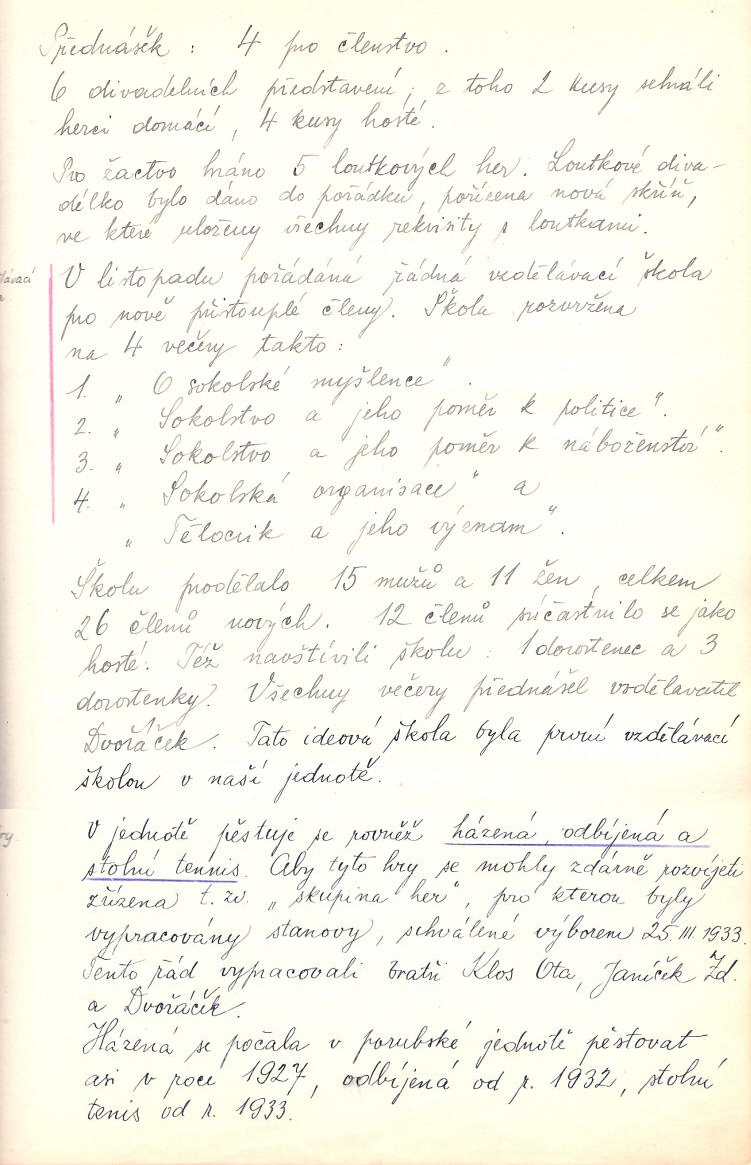 Přednášek : 4 pro členstvo .
6 divadelních představení, z toho 2 kusy sehráli
herci domácí, 4 kusy hosté.
Pro žactvo hráno 5 loutkových her. Loutkové diva-
délko bylo dáno do pořádku, pořízena nová skříň,
ve které uloženy všechny rekvisity s loutkami.
V listopadu pořádáná řádná vzdělávací škola
pro nově přistouplé členy. Škola rozvržena
na 4 večery takto:
1. „ O sokolské myšlence ".
2. „ Sokolstvo a jeho poměr k politice".
3. „ Sokolstvo a jeho poměr k náboženství".
4. „ Sokolská organisace " a
„ Tělocvik a jeho význam".
Školu prodělalo 15 mužů a 11 žen, celkem
26 členů nových. 12 členů súčastnilo se jako
hosté. Též navštívili školu : 1 dorostenec a 3
dorostenky. Všechny večery přednášel vzdělavatel
Dvořáček. Tato ideová škola byla první vzdělávací
školou v naší jednotě.
V jednotě pěstuje se rovněž házená, odbíjená a
stolní tennis. Aby tyto hry se mohly zdárně rozvíjeti
zřízena t. zv. „skupina her", pro kterou byly
vypracovány stanovy, schválené výborem 25. III. 1933.
Tento řád vypracovali bratři Klos Ota, Janíček Zd.
a Dvořáčík.
Házená se počala v porubské jednotě pěstovat
asi v roce 1927, odbíjená od r. 1932, stolní
tenis od r. 1933.